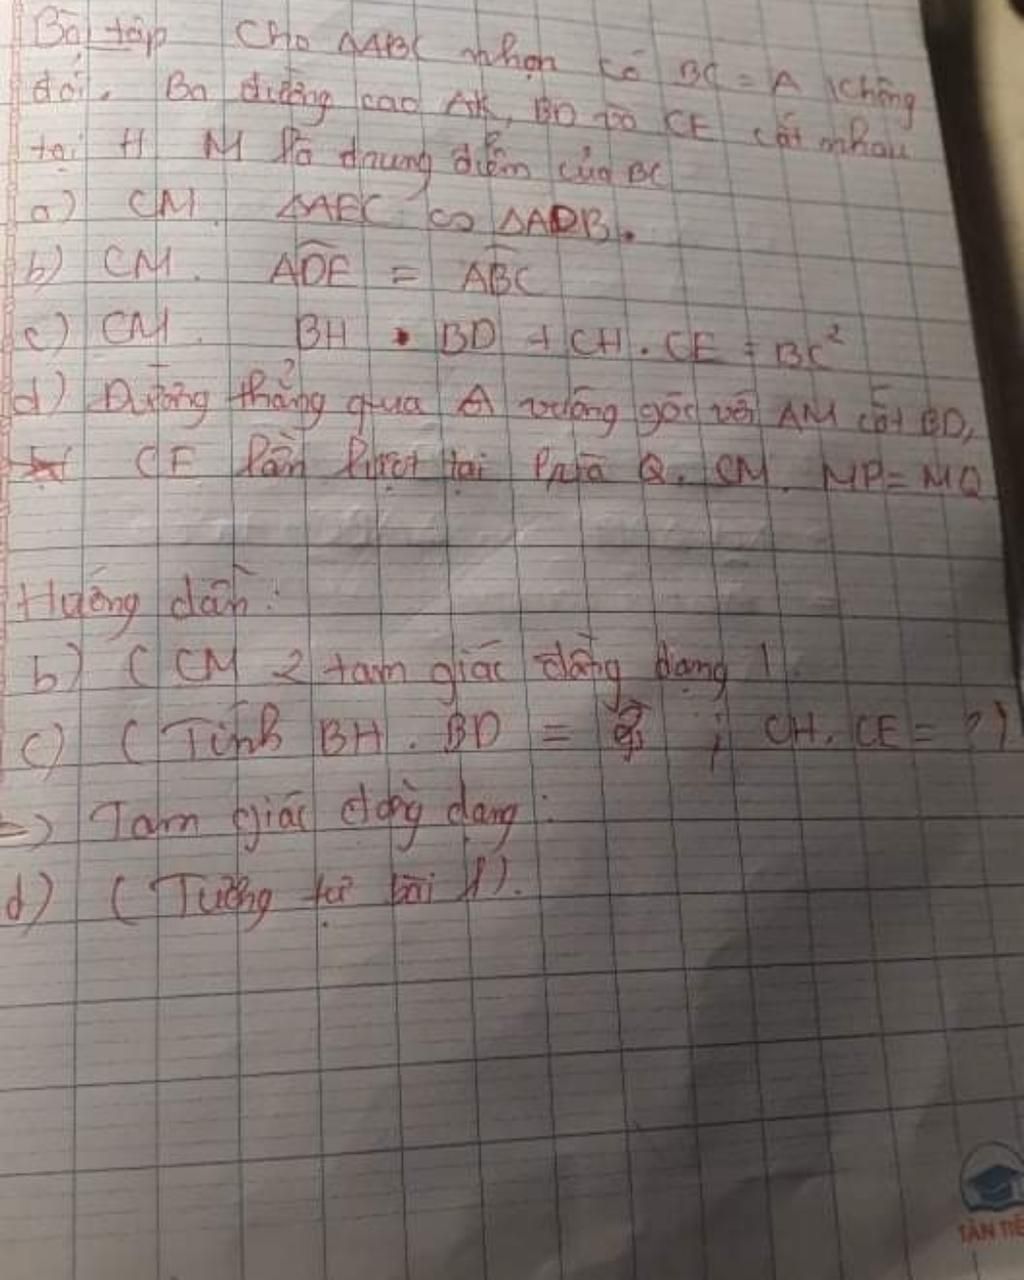 Bài tập Cho ΔABC nhọn có BC = A không
đổi. Ba đường cao AK, BD và CE cắt nhau
tại H M là trung điểm của BC
a) CM. ΔAEC ∽ ΔADB.
b) CM. ADE = ABC
c) CM. BH . BD + CH . CE = BC²
d) Đường thẳng qua A vuông góc với AM cắt BD,
CE lần lượt tại P và Q. CM. MP = MQ
Hướng dẫn:
b) ( CM 2 tam giác đồng dạng ).
c) ( Tính BH . BD = ? ; CH. CE = ?)
=) Tam giác đồng dạng:
d) ( Tương tự bài 1).
TÂN TIẾ